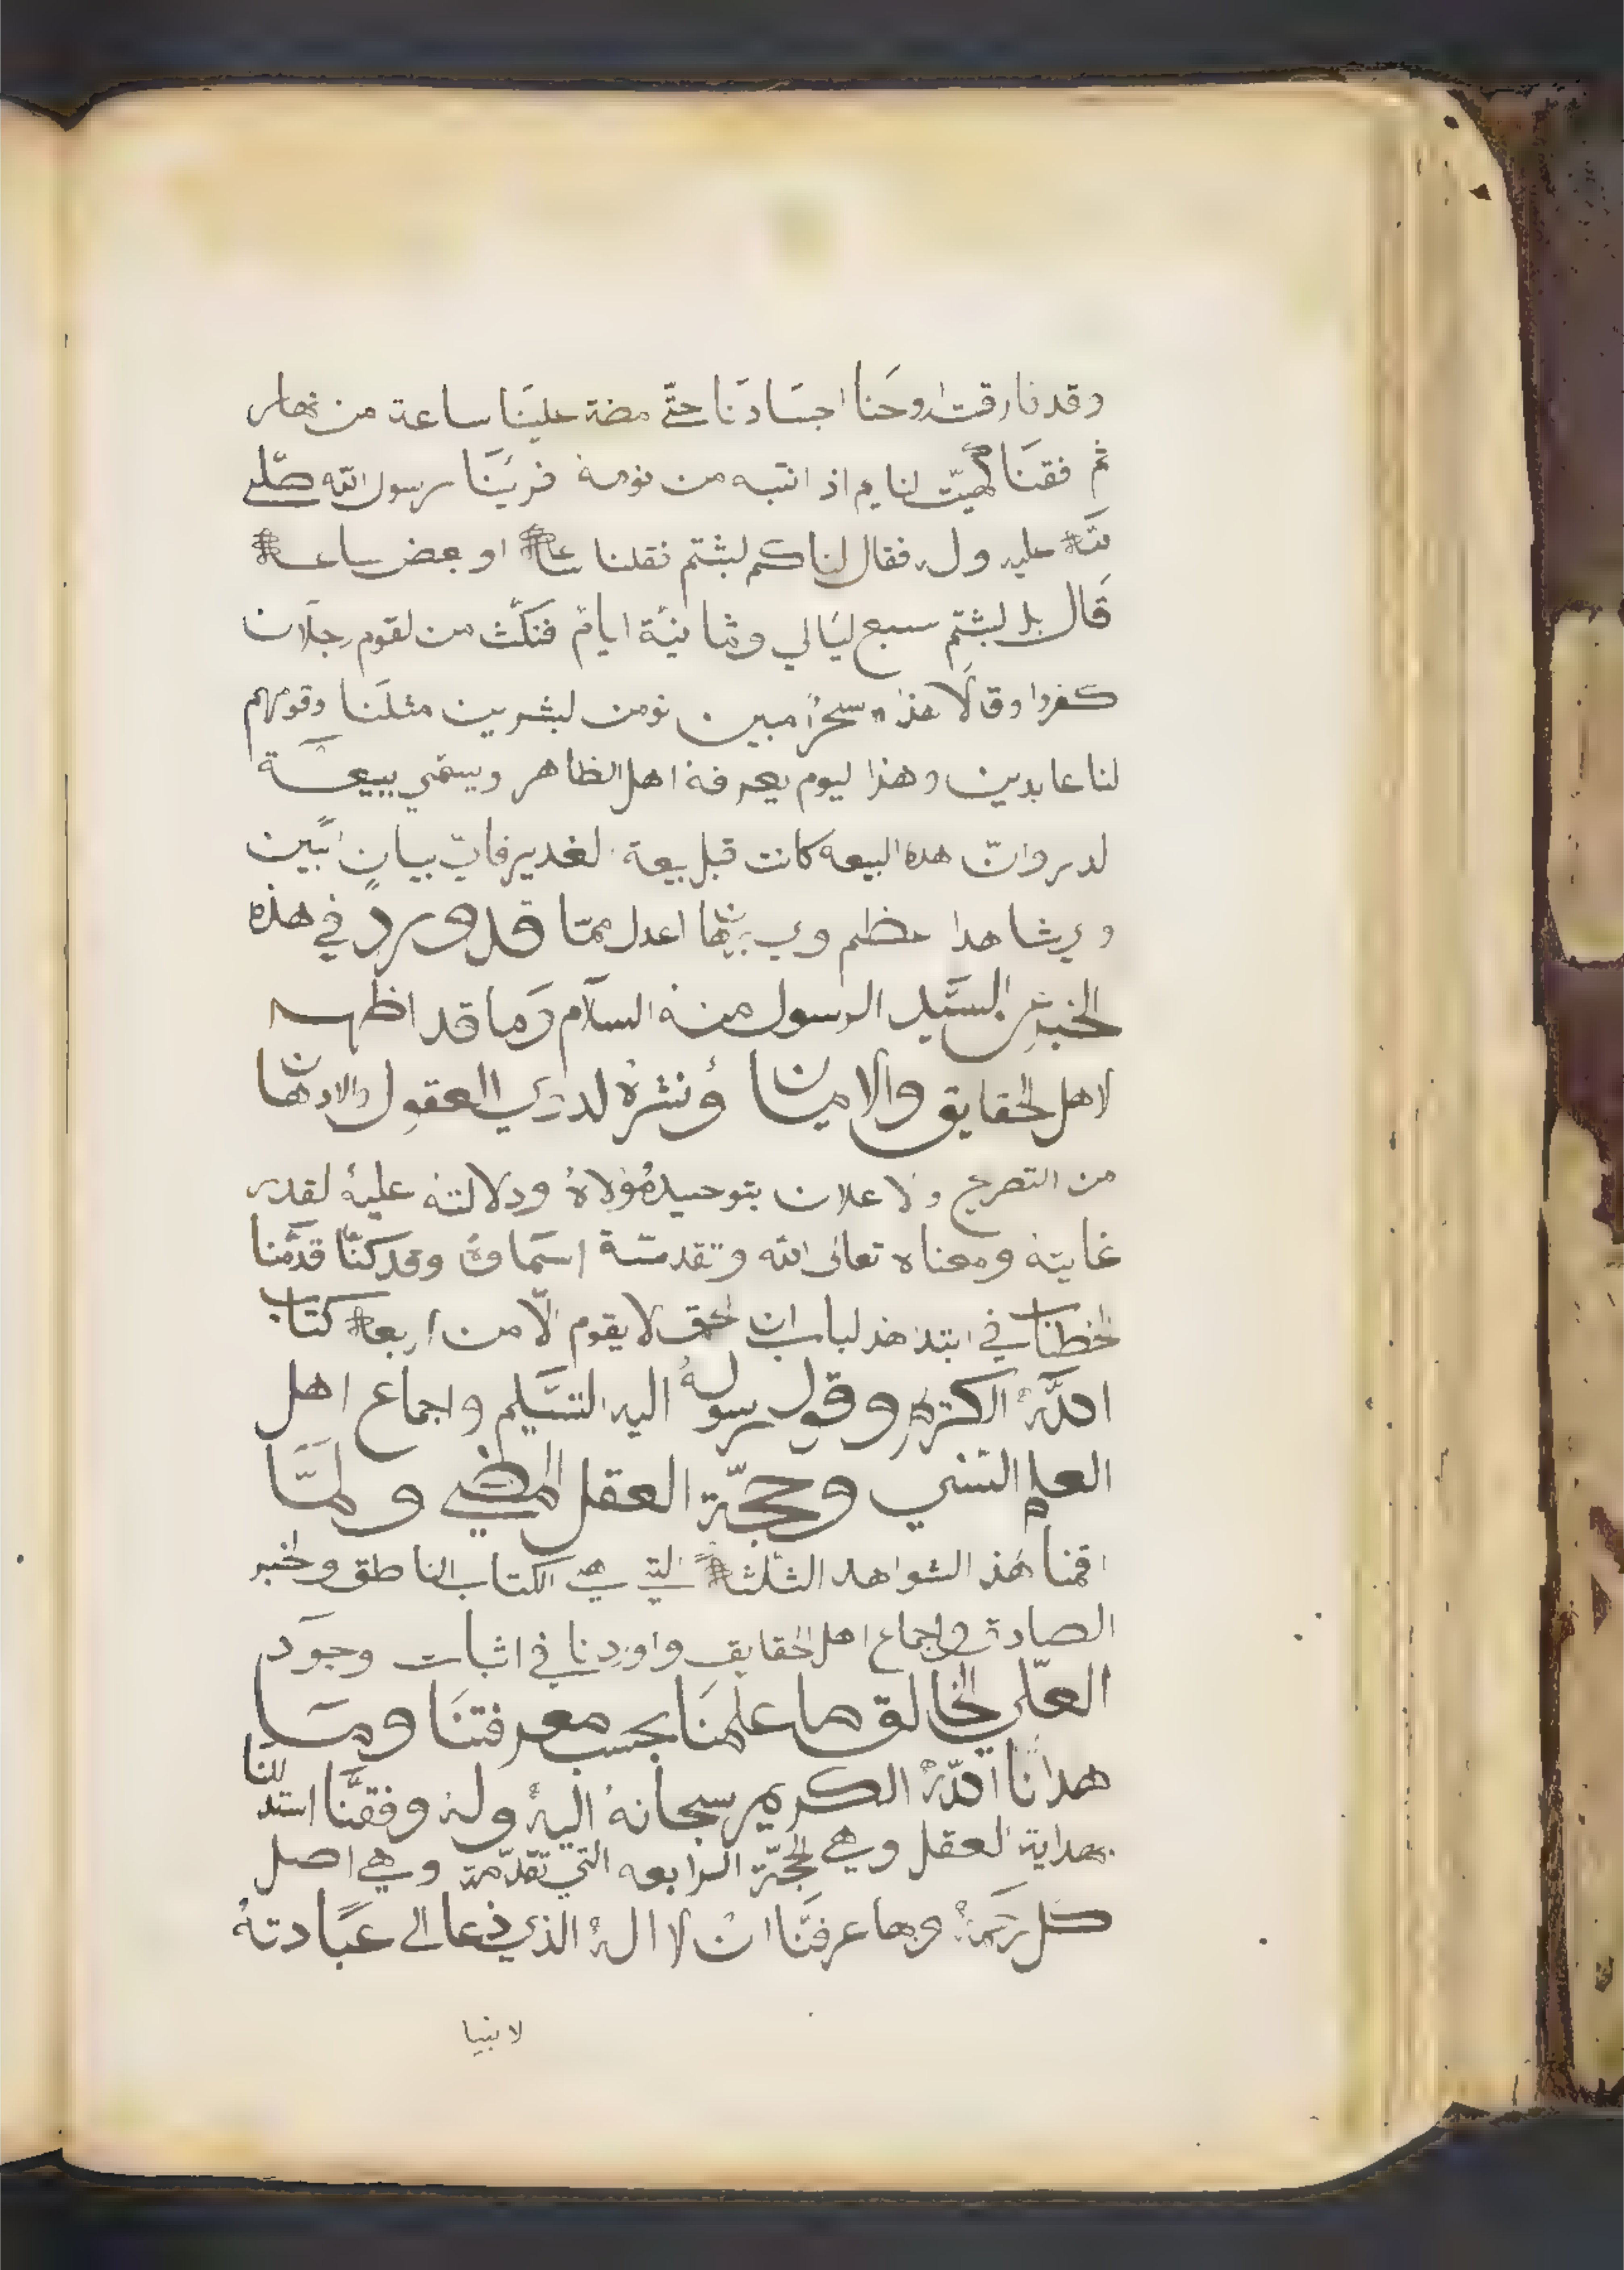 وقد فارقت اروحنا اجسادنا حتّى مضة علينا ساعة من نهار
ثم فقنا كهيّت لنايم اذ انتبه من نومة فريَنا رسول الله صلى
عليه فقال لنا كم لبثتم فقلنا او بعض ساعة
قال بل لبثتم سبع ليالي وثمانية ايام فنكث من لقوم رجلان
كفروا وقالا سحرٌ مبين نومن لبشرين مثلنا وقومهم
لنا عابدين وهذا ليوم يعرفة اهل الظاهر ويسمّي ببيعة
لدر وانّ هده البيعه كانت قبل بيعة لغدير فايّ بيان ابين
شاهدا عظم اعدل ممّا قد ورد في هذه
الخبر السيّد الرسول منه السلام وما قد اظهر
لاهل الحقايق والامانا ونثرهُ لدوي العقول والادهان
من التصريح ولاعلان بتوحيد مُولاهُ ودلالته عليهُ لقدر
غايتة ومعناه تعالى الله وتقدستة اسماوهُ وقد كنّا قدّمنا
في ابتد هذ لباب ان لحق لا يقوم الّا من اربعة كتاب
اللّهُ الكريم وقول رسولهُ اليه التسّليم واجماع اهل
العلم السّني وحجّة العقل المضي ولمّا
اقمنا هذ الشواهد الثلثة التي هي الكتاب الناطق ولخبر
الصادق واجماع اهل الحقايق واوردنا في اثبات وجود
العلّي الخالق ما علمنا بحسب معرفتنا وما
هدانا اللّهُ الكريم سبحانهُ اليهُ ولهُ وفقّنا استدللنا
بهداية العقل وهي لحجّة الرابعه التي تقدّمة وهي اصل
كل رحمة وبها عرفنّا ان لا الهُ الذي دعا الى عبادتهُ
لانبيا